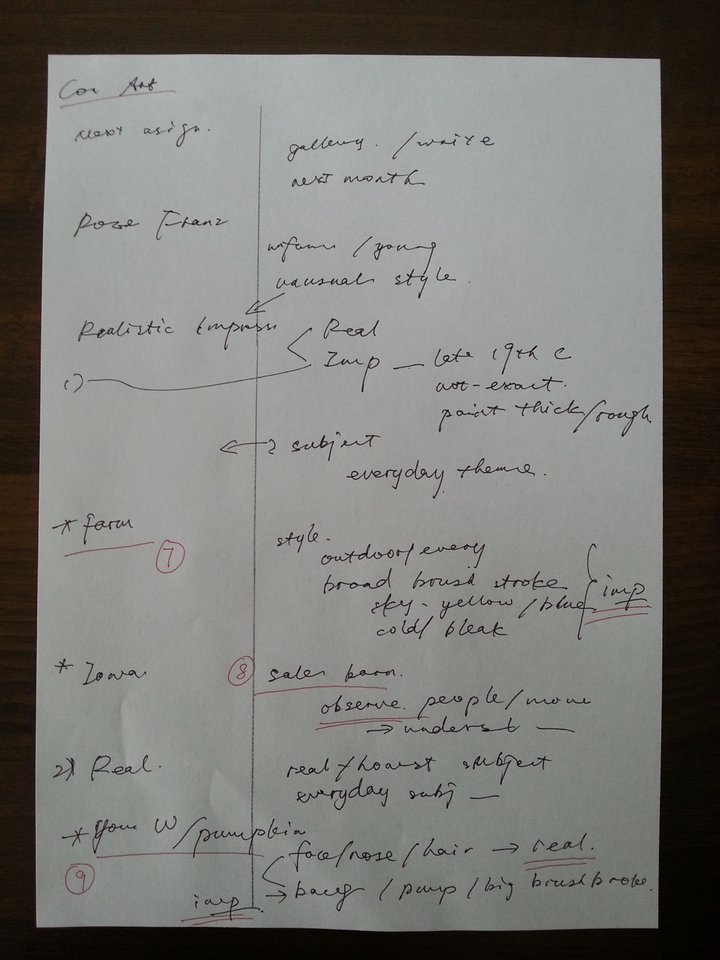 Con Art
Next asign.
gallery. / write
next month
Rose Franz
/ young
unusual style.
Realistic Impress
Real
Imp — late 19th c
1)
not-exact.
paint thick/rough
2 subject
everyday theme.
* farm
⑦
style.
outdoor/every
broad brush stroke
sky - yellow / blue
imp
cold/ bleak
* Iowa
⑧ sales barn.
observe. people / move
→ underst —
2) Real.
real + honest subject
everyday subj —
* Your W/pumpkin
face/nose/hair → real.
⑨
imp → backg / pump / big brush broke.